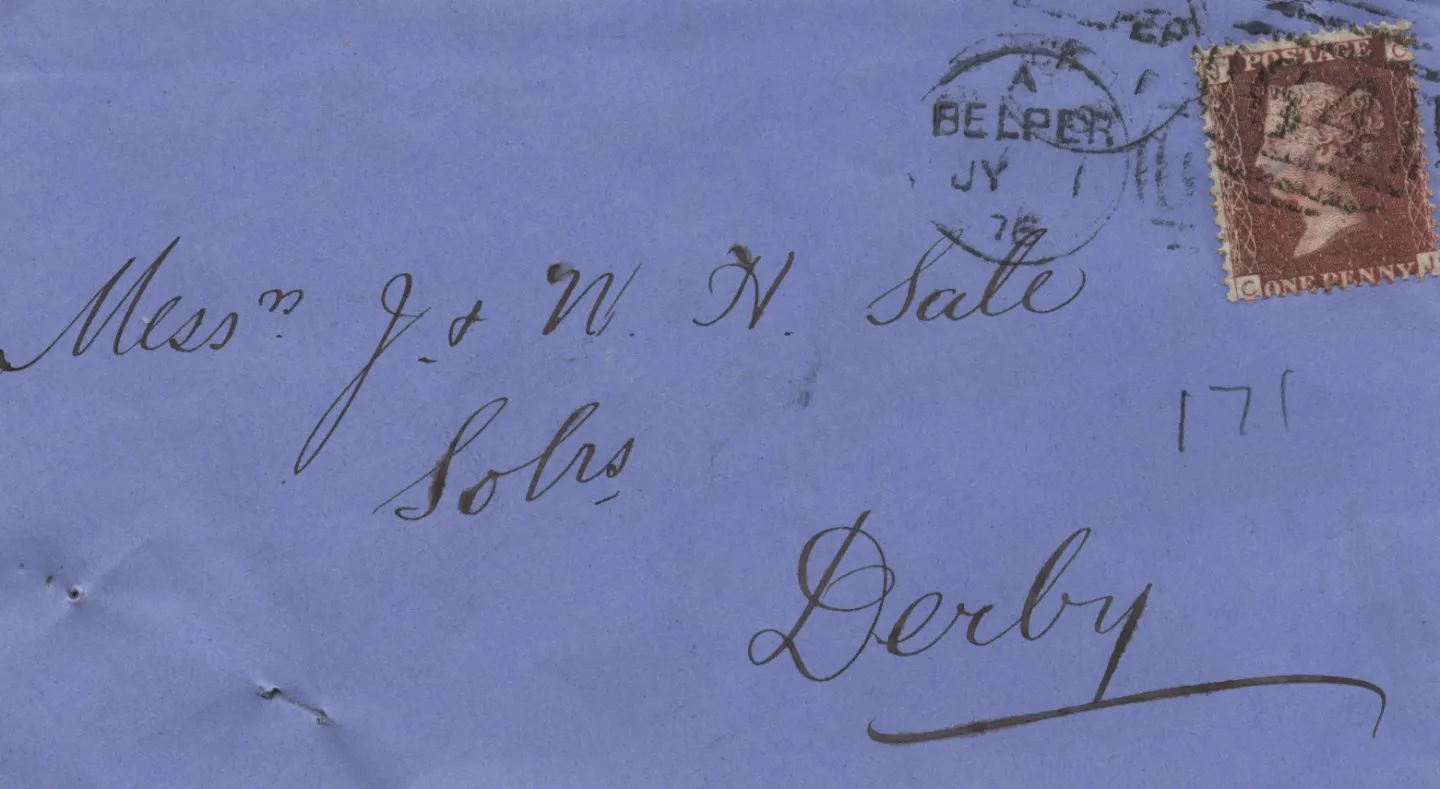 A
BELPER
JY 1
76
POSTAGE C
C ONE PENNY J
Messrs J. & W. H. Sale
Solrs
171
Derby